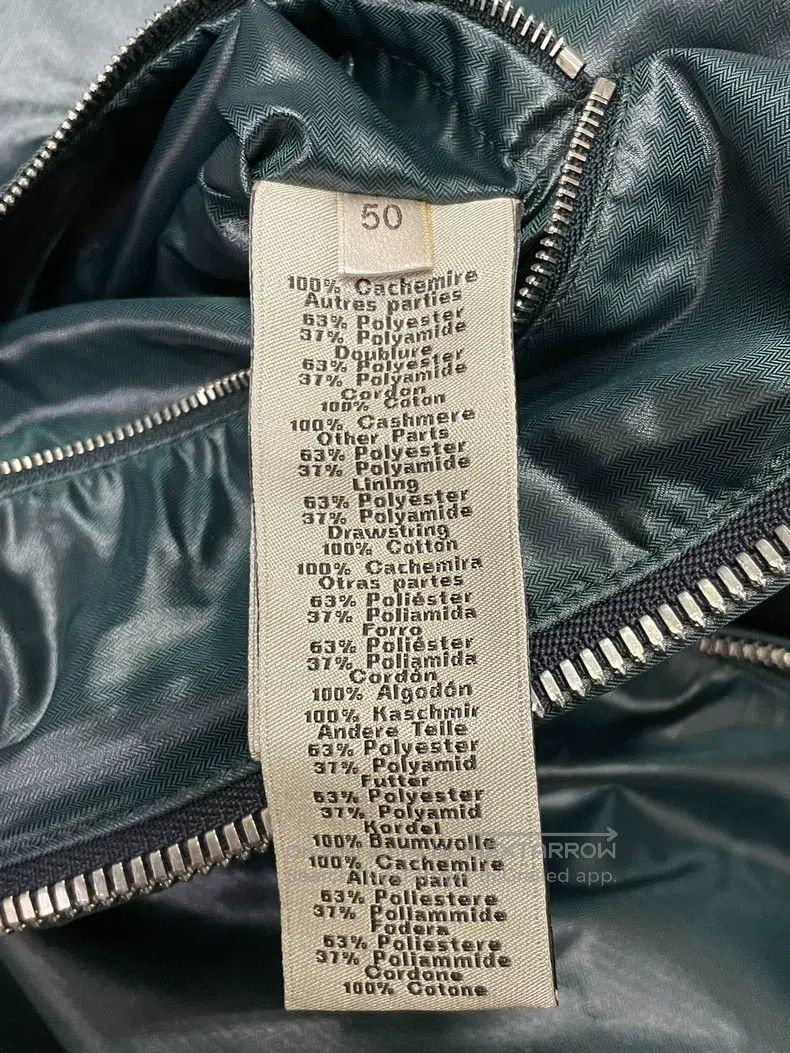 50
100% Cachemire
Autres parties
63% Polyester
37% Polyamide
Doublure
63% Polyester
37% Polyamide
Cordon
100% Coton
100% Cashmere
Other Parts
63% Polyester
37% Polyamide
Lining
63% Polyester
37% Polyamide
Drawstring
100% Cotton
100% Cachemira
Otras partes
63% Poliéster
37% Poliamida
Forro
63% Poliéster
37% Poliamida
Cordón
100% Algodón
100% Kaschmir
Andere Teile
63% Polyester
37% Polyamid
Futter
63% Polyester
37% Polyamid
Kordel
100% Baumwolle
100% Cachemire
Altre parti
63% Poliestere
37% Poliammide
Fodera
63% Poliestere
37% Poliammide
Cordone
100% Cotone
app.